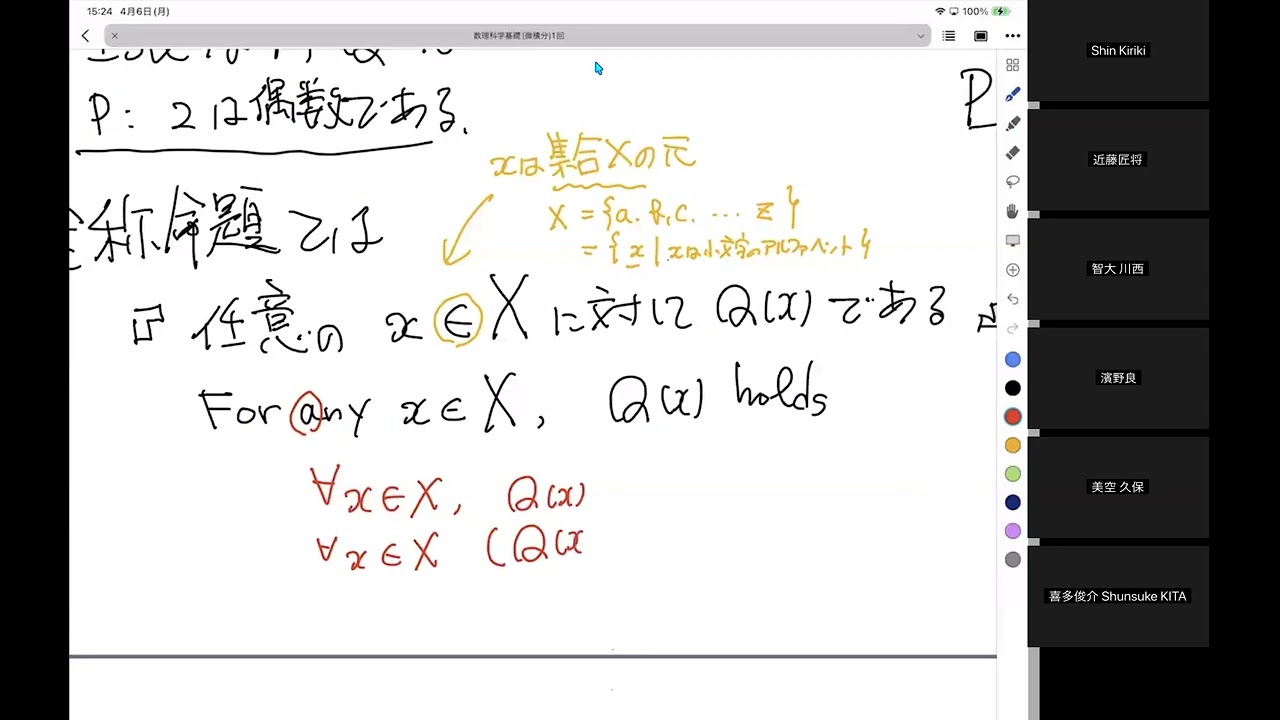 15:24 4月6日(月)
100%
数理科学基礎(微積分)1回
P: 2は偶数である.
P
xは集合Xの元
X = {a, b, c, ... z}
= {x | xは小文字のアルファベット}
全称命題では
『任意の x ∈ X に対して Q(x) である』
For any x ∈ X, Q(x) holds
∀x ∈ X, Q(x)
∀x ∈ X (Q(x
Shin Kiriki
近藤匠将
智大 川西
濱野良
美空 久保
喜多俊介 Shunsuke KITA